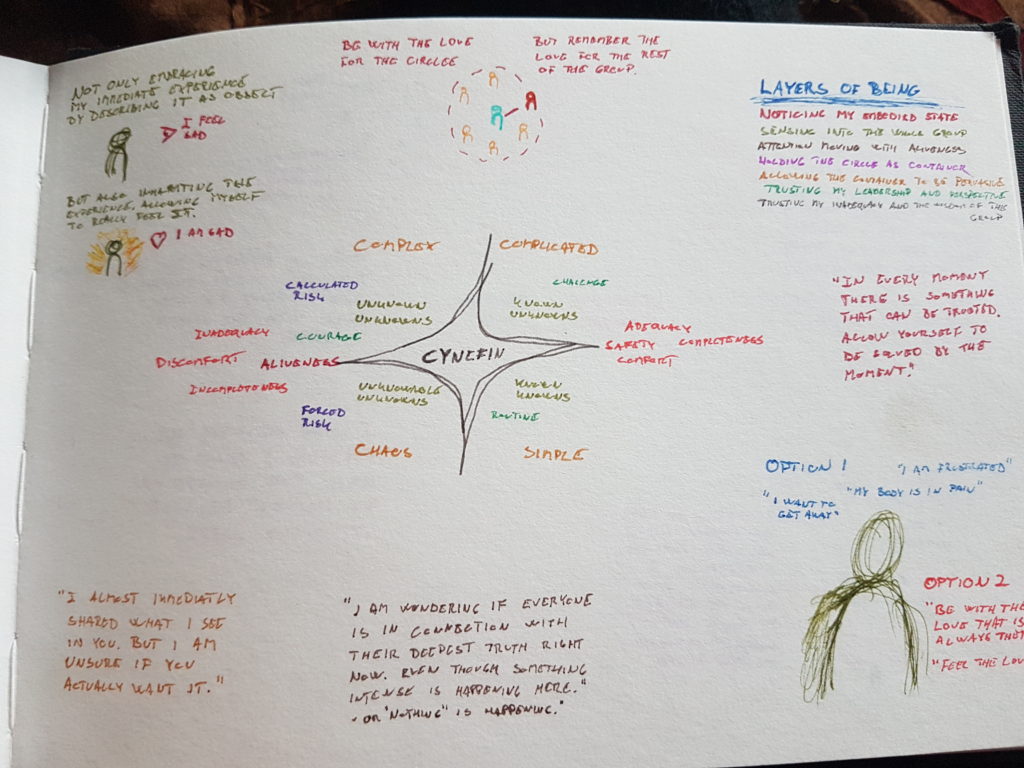 NOT ONLY EMBRACING
MY IMMEDIATE EXPERIENCE
BY DESCRIBING IT AS OBJECT
I FEEL
SAD
BUT ALSO INHABITING THE
EXPERIENCE, ALLOWING MYSELF
TO REALLY FEEL IT.
I AM SAD
BE WITH THE LOVE
FOR THE CIRCLEE
BUT REMEMBER THE
LOVE FOR THE REST
OF THE GROUP.
LAYERS OF BEING
NOTICING MY EMBODIED STATE
SENSING INTO THE WHOLE GROUP
ATTENTION MOVING WITH ALIVENESS
HOLDING THE CIRCLE AS CONTAINER
ALLOWING THE CONTAINER TO BE PERVASIVE
TRUSTING MY LEADERSHIP AND PERSPECTIVE
TRUSTING MY INADEQUACY AND THE WISDOM OF THE
GROUP
COMPLEX
COMPLICATED
CALCULATED
RISK
CHALLENGE
UNKNOWN
UNKNOWNS
KNOWN
UNKNOWNS
INADEQUACY
COURAGE
DISCOMFORT
ALIVENESS
INCOMPLETENESS
CYNEFIN
ADEQUACY
SAFETY
COMPLETENESS
COMFORT
UNKNOWABLE
UNKNOWNS
KNOWN
KNOWNS
FORCED
RISK
ROUTINE
CHAOS
SIMPLE
"IN EVERY MOMENT
THERE IS SOMETHING
THAT CAN BE TRUSTED.
ALLOW YOURSELF TO
BE SERVED BY THE
MOMENT"
OPTION 1
"I AM FRUSTRATED"
"MY BODY IS IN PAIN"
"I WANT TO
GET AWAY"
OPTION 2
"BE WITH THE
LOVE THAT IS
ALWAYS
"FEEL THE
"I ALMOST IMMEDIATLY
SHARED WHAT I SEE
IN YOU. BUT I AM
UNSURE IF YOU
ACTUALLY WANT IT."
"I AM WONDERING IF EVERYONE
IS IN CONNECTION WITH
THEIR DEEPEST TRUTH RIGHT
NOW. EVEN THOUGH SOMETHING
INTENSE IS HAPPENING HERE."
- OR "NOTHING" IS HAPPENING."